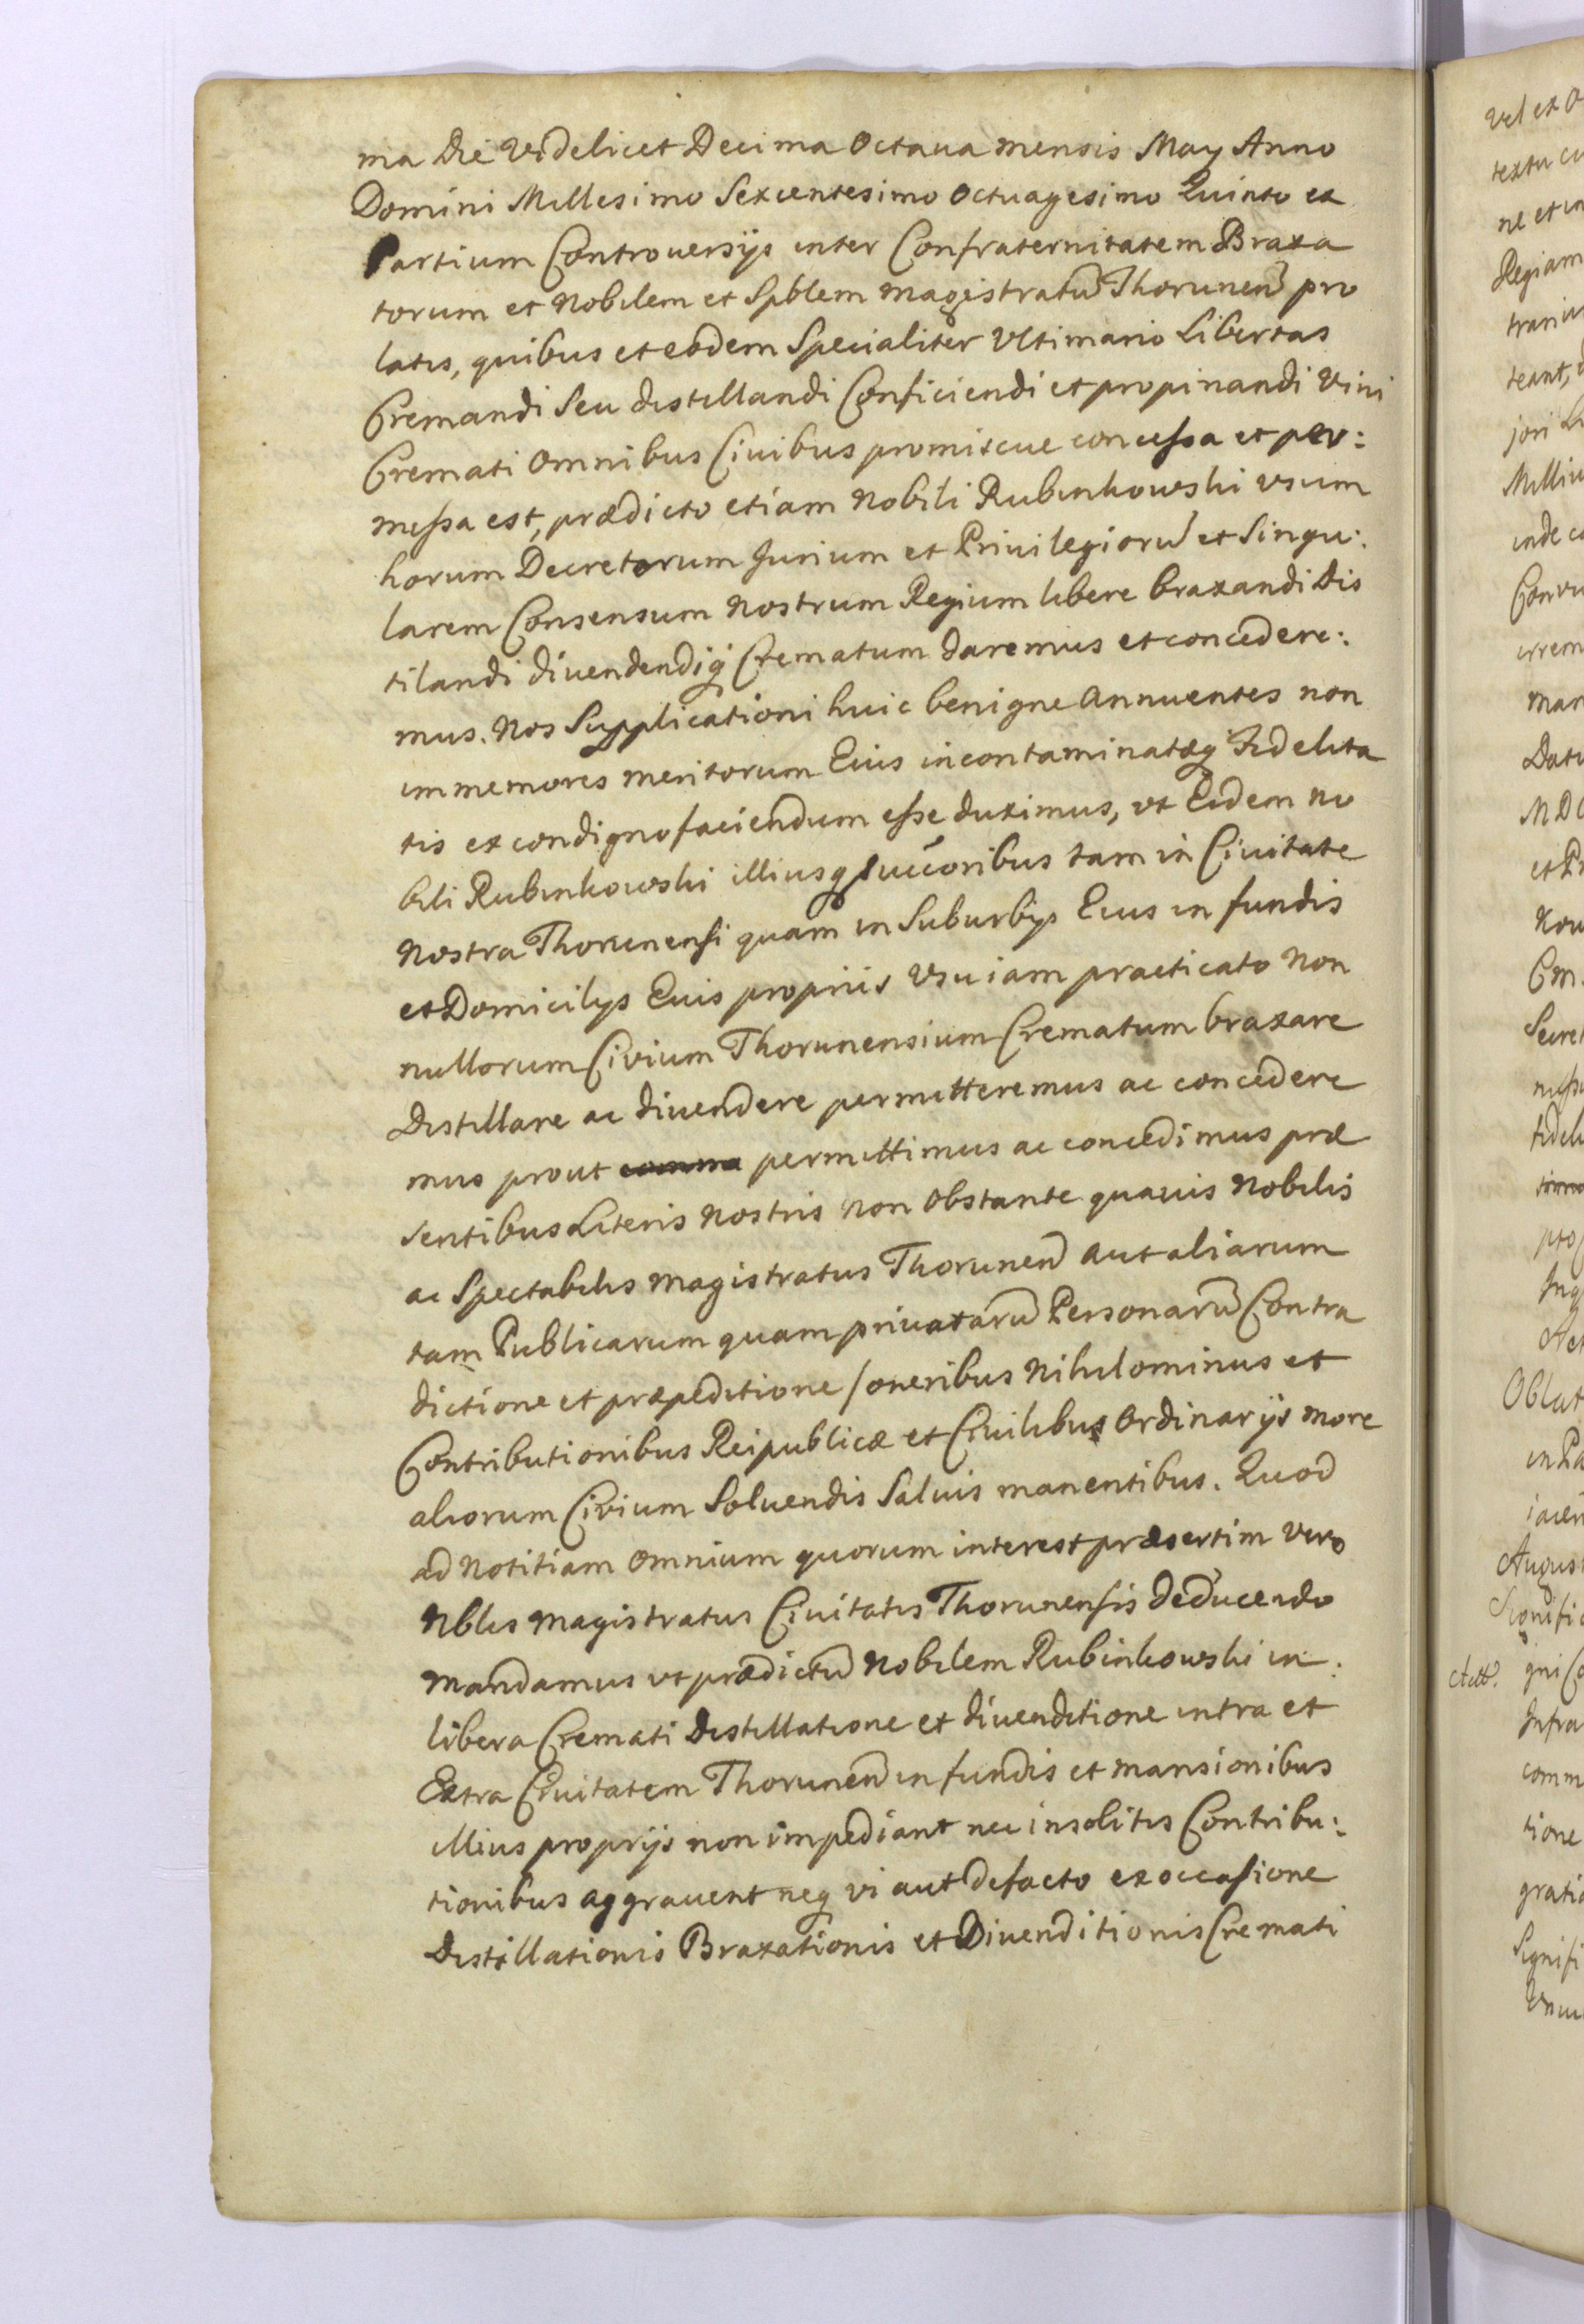 ma Die Videlicet Decima Octaua mensis May Anno
Domini Millesimo Sexcentesimo Octuagesimo Quinto ex
Partium Controuersijs inter Confraternitatem Braxa
torum et Nobilem et Spblem Magistratũ Thorunen̄ pro
latis, quibus et eodem Specialiter Vltimario Libertas
Cremandi Seu distillandi Conficiendi et propinandi Vini
Cremati Omnibus Ciuibus promiscue concessa et per:
messa est, prædicto etiam Nobili Rubinkowski vsum
horum Decretorum Jurium et Priuilegiorũ et Singu:
larem Consensum Nostrum Regium libere braxandi Dis
tilandi diuendendiq Crematum daremus et concedere:
mus. Nos Supplicationi huic benigne Annuentes non
immemores meritorum Eius incontaminatæq Fidelita
tis ex condigno faciendum esse duximus, vt Eidem No
bili Rubinkowski illiusq succoribus tam in Ciuitate
Nostra Thorunensi quam in Suburbijs Eius in fundis
et Domicilijs Euis proprijs Vsu iam practicato Non
nullorum Civium Thorunensium Crematum braxare
Distillare ac diuendere permitteremus ac concedere
mus prout permittimus ac concedimus præ
sentibus Literis Nostris non Obstante quauis Nobilis
ac Spectabilis Magistratus Thorunen̄ Aut aliarum
tam Publicarum quam priuatarũ Personarũ Contra
dictione et præpeditione / oneribus Nihilominus et
Contributionibus Reipublicæ et Ciuilibus Ordinarijs more
aliorum Civium Soluendis Saluis manentibus. Quod
ad Notitiam Omnium quorum interest præsertim Vero
Nblis Magistratus Ciuitatis Thorunensis deducendo
Mandamus vt prædictũ Nobilem Rubinkowski in:
libera Cremati Distillatione et diuenditione intra et
Extra Ciuitatem Thorunen̄ in fundis et Mansionibus
illius proprijs non impediant nec insolitis Contribu:
tionibus aggrauent neq vi aut defacto ex occasione
Distillationis Braxationis et Diuenditionis Cremati